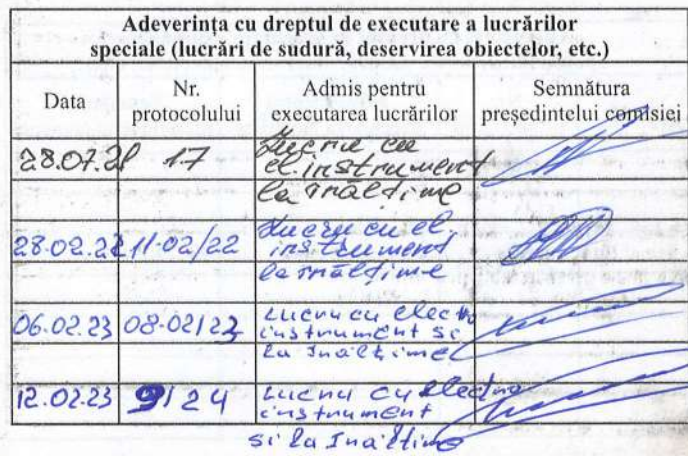 Adeverința cu dreptul de executare a lucrărilor
speciale (lucrări de sudură, deservirea obiectelor, etc.)
Data
Nr.
protocolului
Admis pentru
executarea lucrărilor
Semnătura
președintelui comisiei
28.07.21 17 Lucrul cu
el. instrument
la înălțime
28.02.22 11-02/22 Lucru cu el.
instrument
la înălțime
06.02.23 08-02/23 Lucru cu electro
instrument si
la Inaltime
12.02.23 9/24 Lucru cu electro
instrument
si la Inaltime